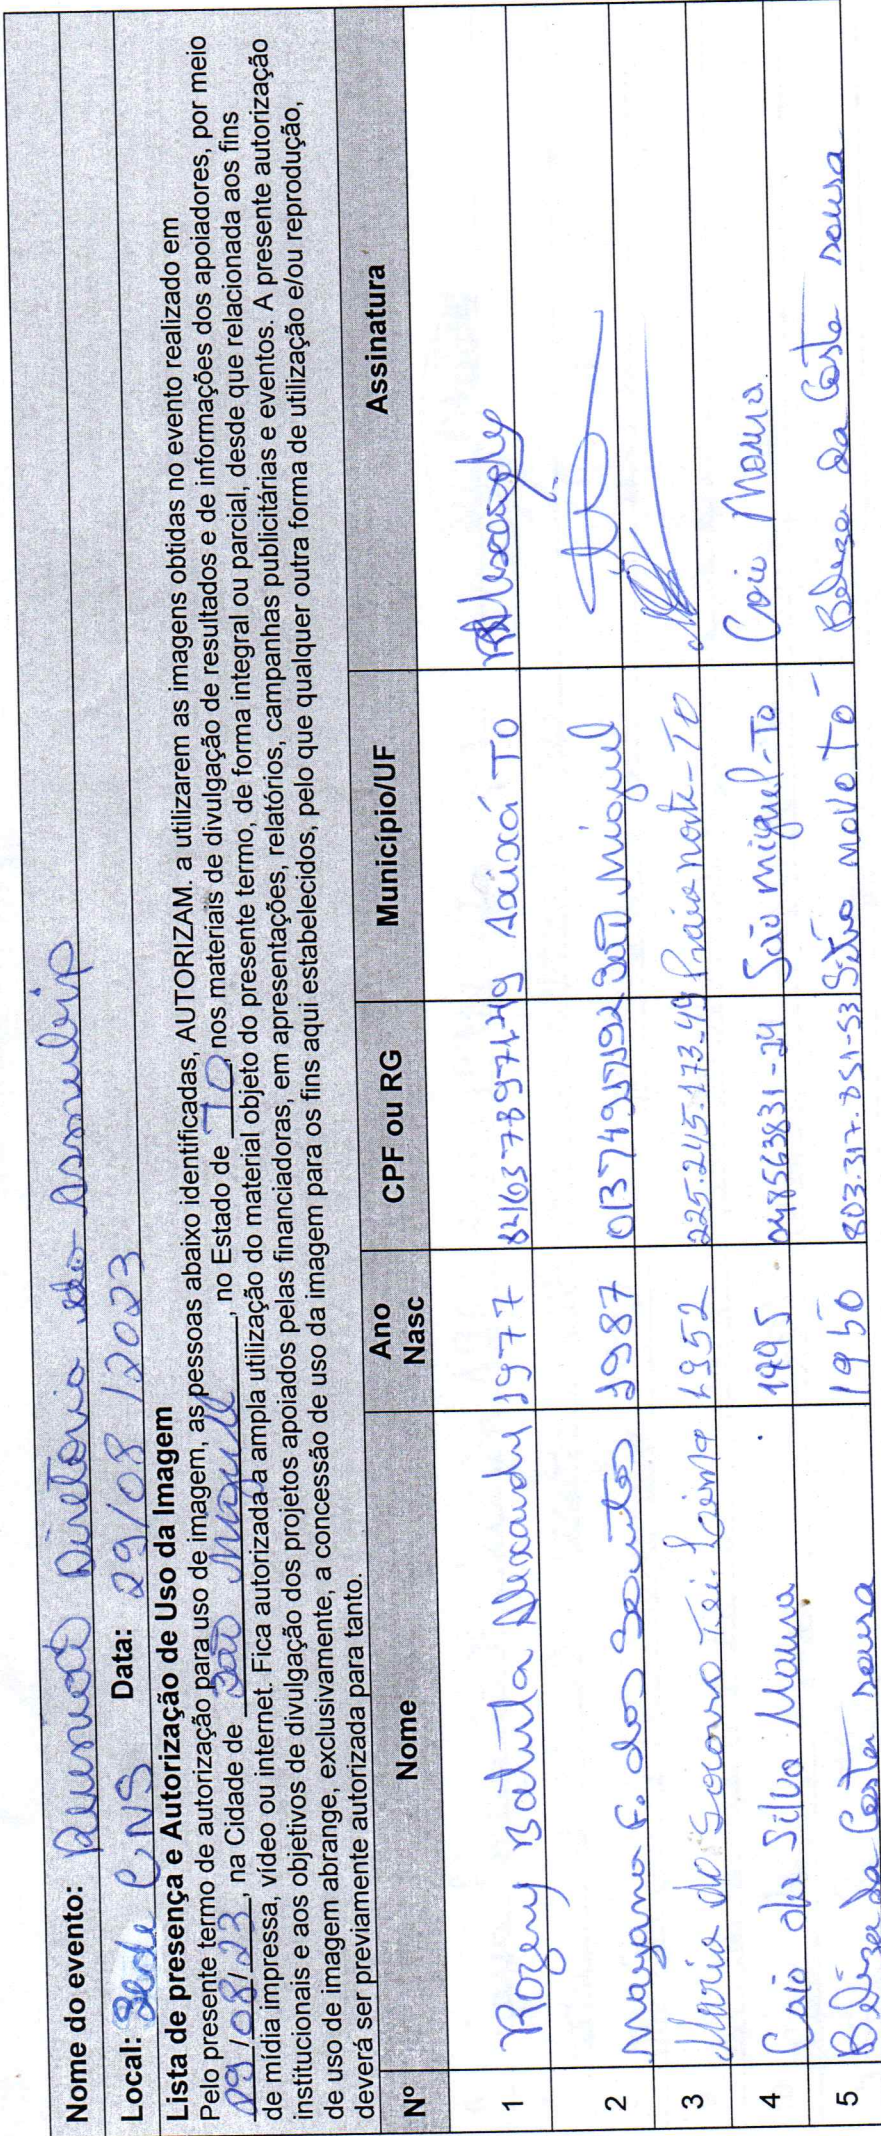 Nome do evento: Reunião Diretoria da Asmubip
Local: Sede CNS Data: 29/08/2023
Lista de presença e Autorização de Uso da Imagem
Pelo presente termo de autorização para uso de imagem, as pessoas abaixo identificadas, AUTORIZAM. a utilizarem as imagens obtidas no evento realizado em
29/08/23, na Cidade de São Miguel, no Estado de TO, nos materiais de divulgação de resultados e de informações dos apoiadores, por meio
de mídia impressa, vídeo ou internet. Fica autorizada a ampla utilização do material objeto do presente termo, de forma integral ou parcial, desde que relacionada aos fins
institucionais e aos objetivos de divulgação dos projetos apoiados pelas financiadoras, em apresentações, relatórios, campanhas publicitárias e eventos. A presente autorização
de uso de imagem abrange, exclusivamente, a concessão de uso da imagem para os fins aqui estabelecidos, pelo que qualquer outra forma de utilização e/ou reprodução,
deverá ser previamente autorizada para tanto.
Nº Nome Ano Nasc CPF ou RG Município/UF Assinatura
1 Rozeny Batista Alexandre 1977 Axixá TO RAlexandre
2 Mayana F. dos Santos 1987 São Miguel
3 Maria do Socorro Tei. Lima 1952 225.245.173-49 Praia norte-TO
4 Caio da Silva Moura 1995 048563831-24 São Miguel-TO Caio Moura
5 Beliza da Costa sousa 1950 803.317.851-53 Sítio novo TO Beliza da Costa sousa